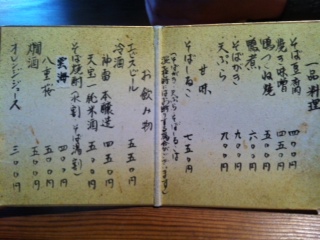 一品料理
そば豆腐 四〇〇円
焼き味噌 四五〇円
鴨つくね焼 五〇〇円
鴨煮 六〇〇円
そばがき 九〇〇円
天ぷら 九〇〇円
甘味
そばしるこ 七五〇円
お飲み物
ヱビスビール 五五〇円
冷酒
神亀 本醸造 四五〇円
天宝一純米酒 五〇〇円
そば焼酎(水割 そば湯割)
雲海 四〇〇円
八重桜 五〇〇円
燗酒 五五〇円
オレンジジュース 三〇〇円